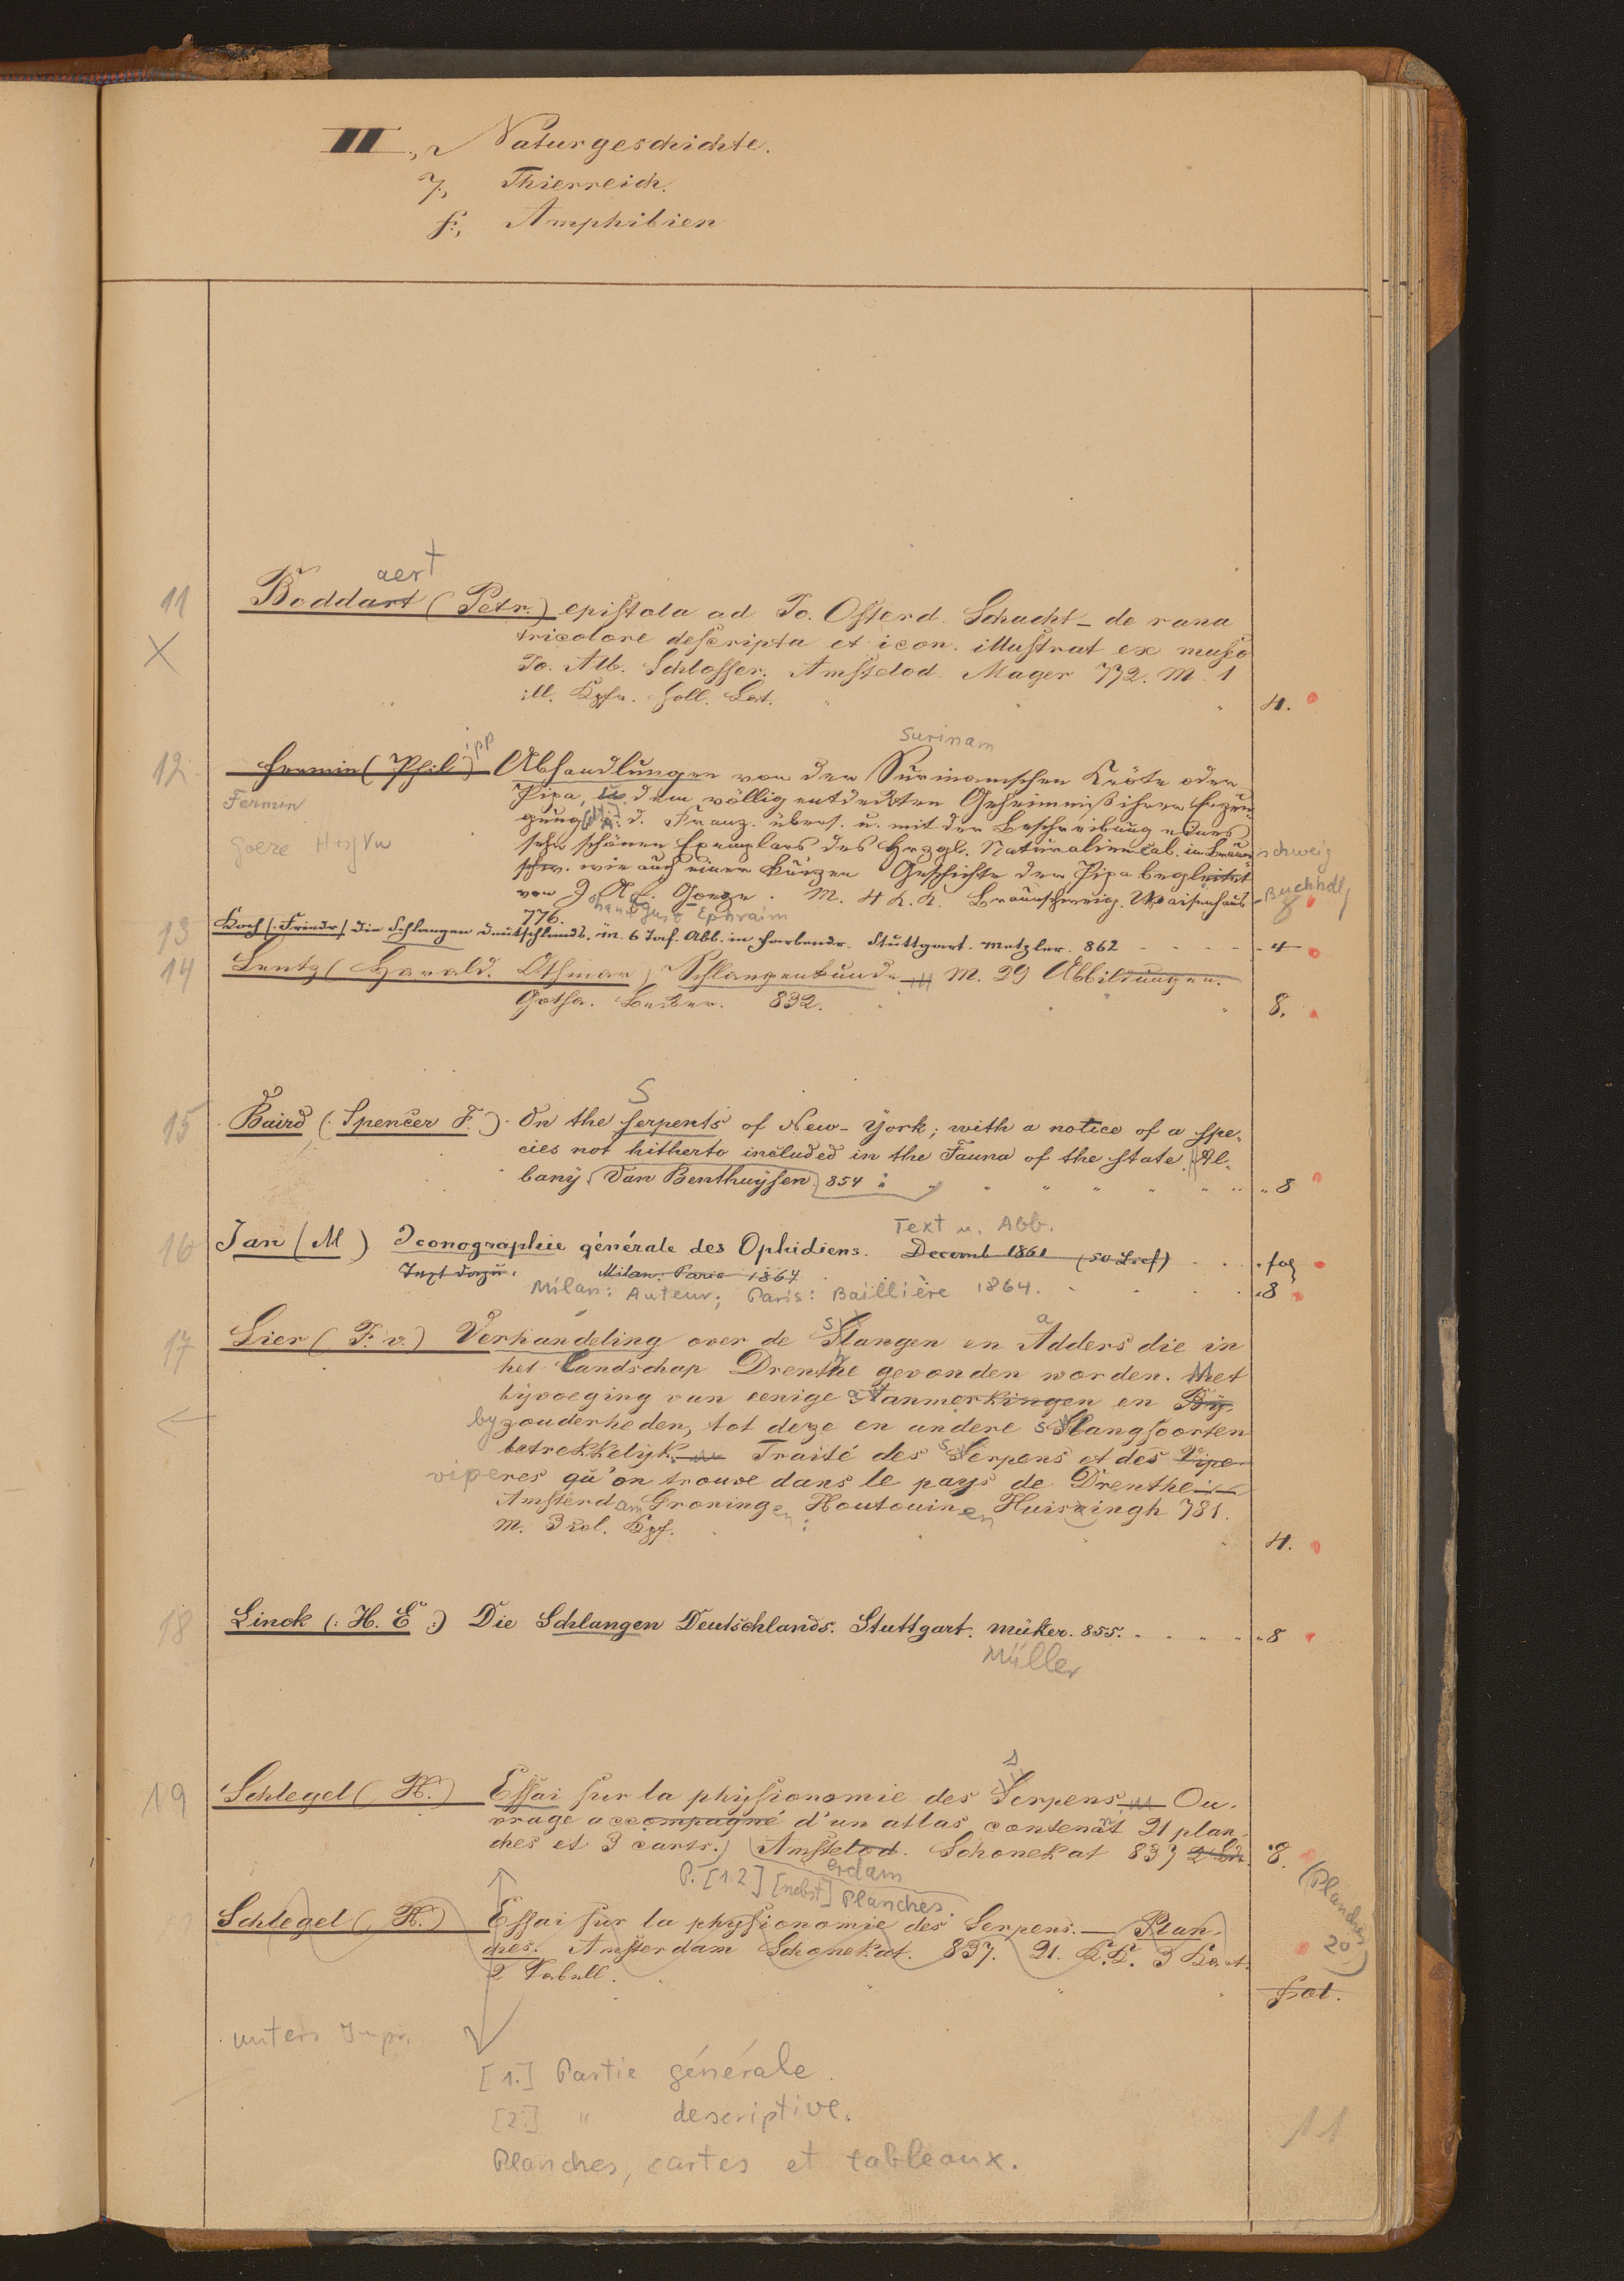 III., Naturgeschichte.
7., Thierreich.
f., Amphibien
aert
11 Boddart (Petr.) epistola ad Jo. Osterd. Schacht – de rana
X tricolore descripta et icon. illustrat ex museo
Jo. Alb. Schlosser. Amstelod. Mager 772. M. 1
ill. Kpfr. holl. Lat. 4.
ipp Surinam
12 Fermin (Phil.) Abhandlungen von der Surinamschen Kröte oder
Fermin Pipa, dem völlig entdeckten Geheimniß ihrer Erzeu-
gung d. Franz. übers. u. mit der Beschreibung eines
Goeze sehr schönen Exemplars des Hrzgl. Naturaliencab. in Braun schweig
schw. wie auch einer kurzen Geschichte der Pipa begleitet
von J. A. E. Goeze. M. 4 K. K. Braunschweig. Waisenhaus Buchhdlg 8
776. ohann ugust Ephraim
13 Koch (Friedr) die Schlangen Deutschlands. m. 6 Taf. Abb. in Farbendr. Stuttgart. Metzler. 862 4
14 Lentz (Harald. Othmar) Schlangenkunde M. 29 Abbildungen.
Gotha. Becker. 832. 8.
S
15 Baird (Spencer F.) On the serpents of New-York; with a notice of a spe-
cies not hitherto included in the Fauna of the state. Al-
bany Van Benthuysen 854 8
Text u. Abb.
16 Jan (M) Iconographie générale des Ophidiens. Decemb 1861 (50 Lief) fol
Text dazu. Milan. Paris 1864
Milan: Auteur; Paris: Baillière 1864. 8
17 Lier (F. v.) Verhandeling over de Slangen en Adders die in
het Landschap Drenthe gevonden worden. Met
bijvoeging van eenige Aanmerkingen en Bij-
by zonderheden, tot deze en andere Slangsoorten
betrekkelijk. Traité des Serpens et des Vipe-
viperes qu'on trouve dans le pays de Drenthe
Amsterdam Groningen Houtouin en Huisingh 781.
m. 3 col. Kpf. 4.
18 Linck (: H. E :) Die Schlangen Deutschlands. Stuttgart. müker. 855. 8
Müller
s
19 Schlegel (H.) Essai sur la physionomie des Serpens Ou-
vrage accompagné d'un atlas contenant 21 plan-
ches et 3 carts.) Amstelod. Schonekat 837 2 Bde. 8.
erdam
P. [1.2] [nebst] Planches. (Planches 2°)
Schlegel (H.) Essai sur la physionomie des Serpens. — Plan-
ches. Amsterdam Schonekat. 837. 21. K.K. 3 Kart.
2 Tabell. Fol.
unters Impr.
[1.] Partie générale.
[2.] " descriptive.
Planches, cartes et tableaux.
11